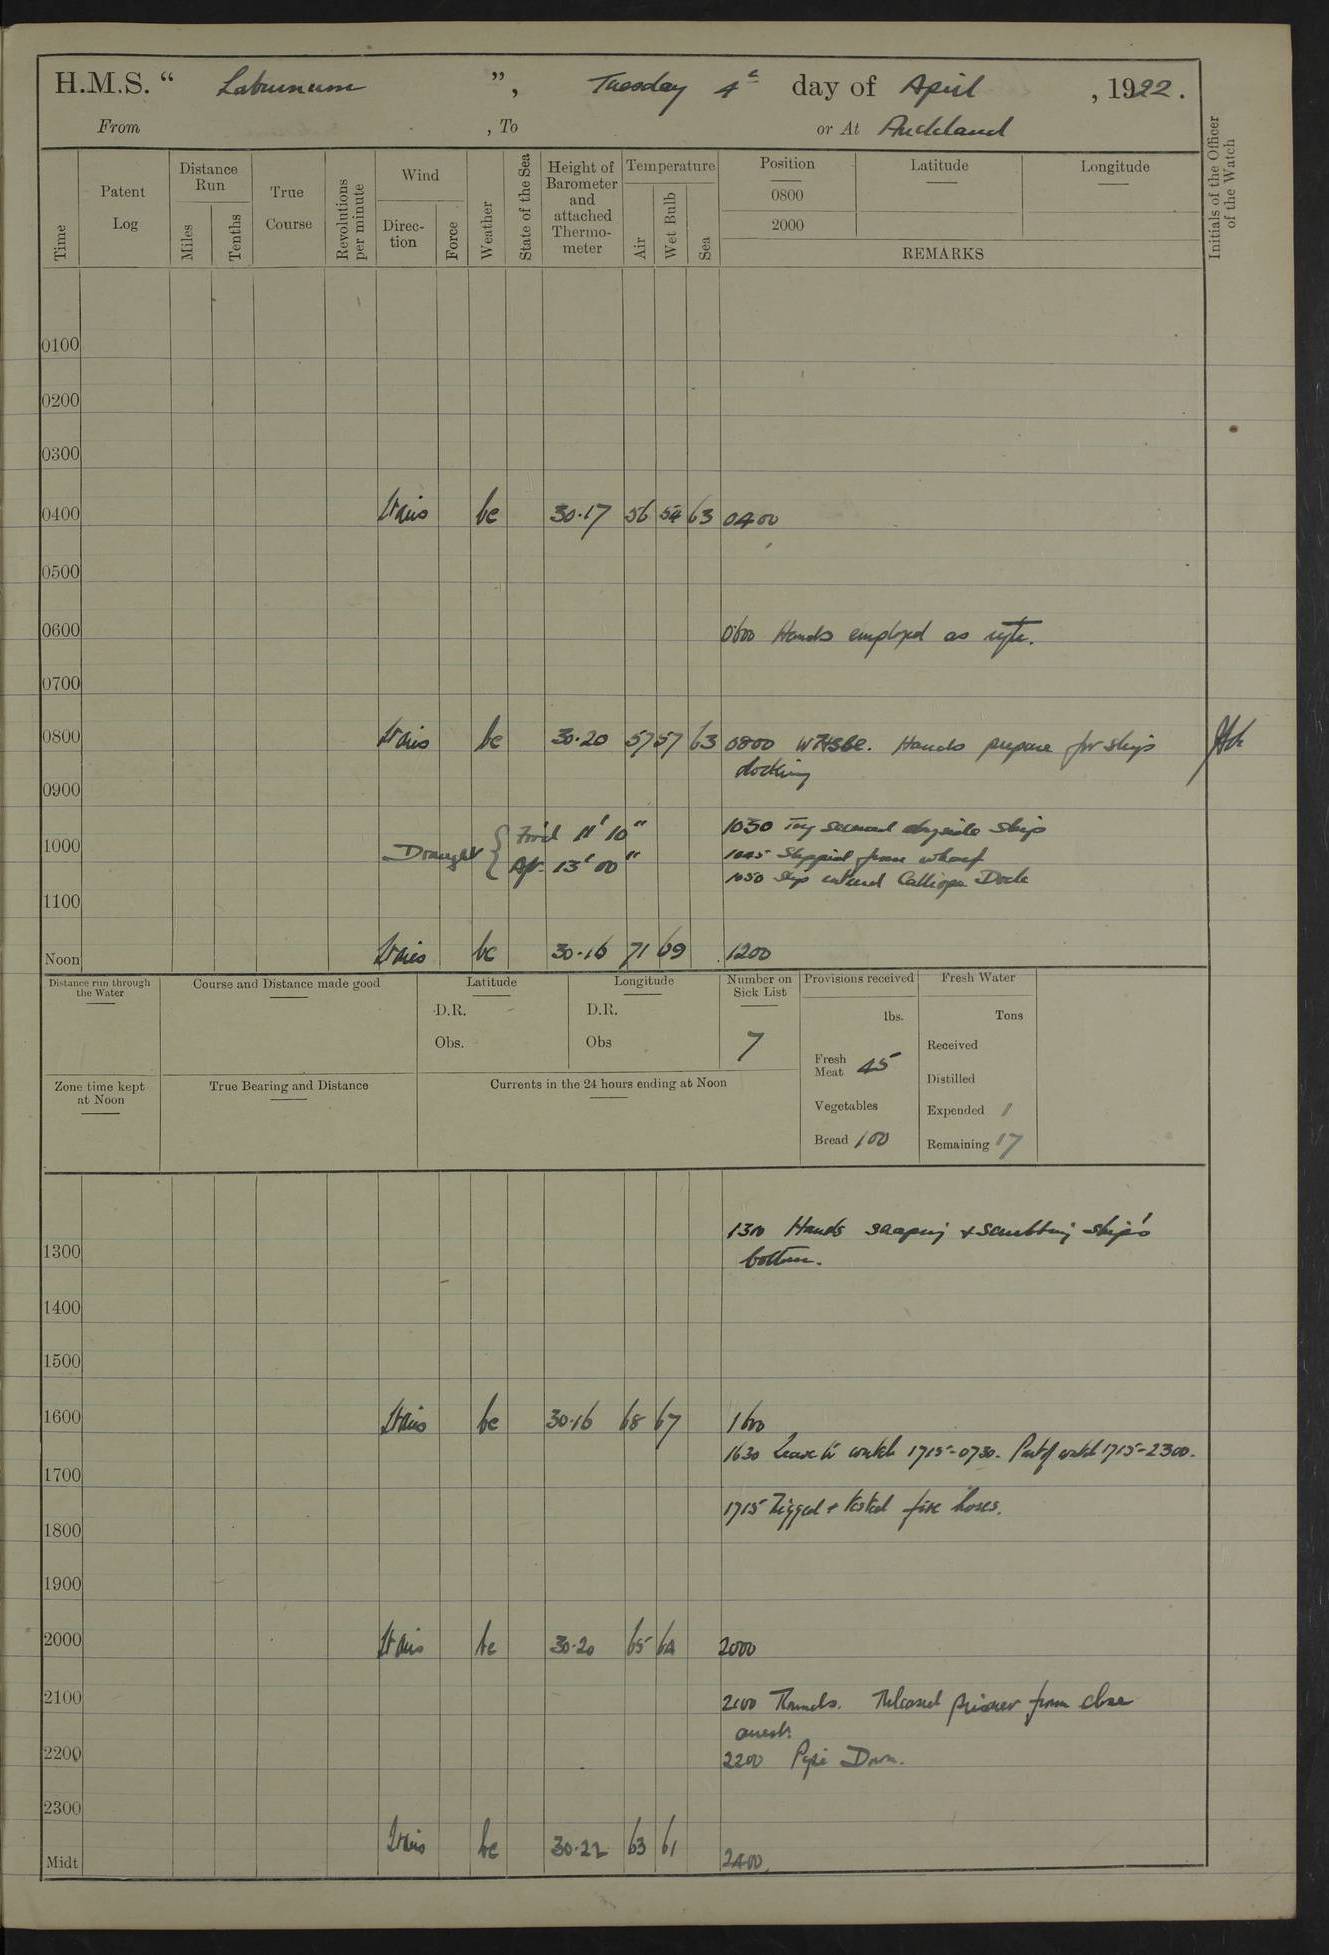 H.M.S. “ Laburnum ”, Tuesday 4th day of April , 1922.
From , To or At Auckland
Time
Patent Log
Distance Run
Miles
Tenths
True Course
Revolutions per minute
Wind
Direction
Force
Weather
State of the Sea
Height of Barometer and attached Thermometer
Temperature
Air
Wet Bulb
Sea
Position
0800
2000
Latitude
Longitude
REMARKS
Initials of the Officer of the Watch
0100
0200
0300
0400 Lt airs bc 30.17 56 54 63 0400
0500
0600 0600 Hands employed as
0700
0800 Lt airs bc 30.20 57 57 63 0800 Hands prepare for ship's
docking
0900
1030 Tug secured alongside ship
1000 Draught { For'd 11' 10"
Aft 13' 00"
1045 Slipped from wharf
1050 Ship entered Calliope Dock
1100
Noon Lt airs bc 30.16 71 69 1200
Distance run through the Water
Course and Distance made good
Latitude
D.R.
Obs.
Longitude
D.R.
Obs
Number on Sick List
7
Provisions received
lbs.
Fresh Meat 45
Vegetables
Bread 100
Fresh Water
Tons
Received
Distilled
Expended 1
Remaining 17
Zone time kept at Noon
True Bearing and Distance
Currents in the 24 hours ending at Noon
1300 1300 Hands scraping & scrubbing ship's
bottom.
1400
1500
1600 Lt airs bc 30.16 68 67 1600
1630 Leave to watch 1715-0730. Part of watch 1715-2300.
1700
1715 Rigged & tested fire hoses.
1800
1900
2000 Lt airs bc 30.20 65 64 2000
2100 2100 Rounds. Released prisoner from close
arrest.
2200 2200 Pipe Down.
2300
Midt Lt airs bc 30.22 63 61 2400